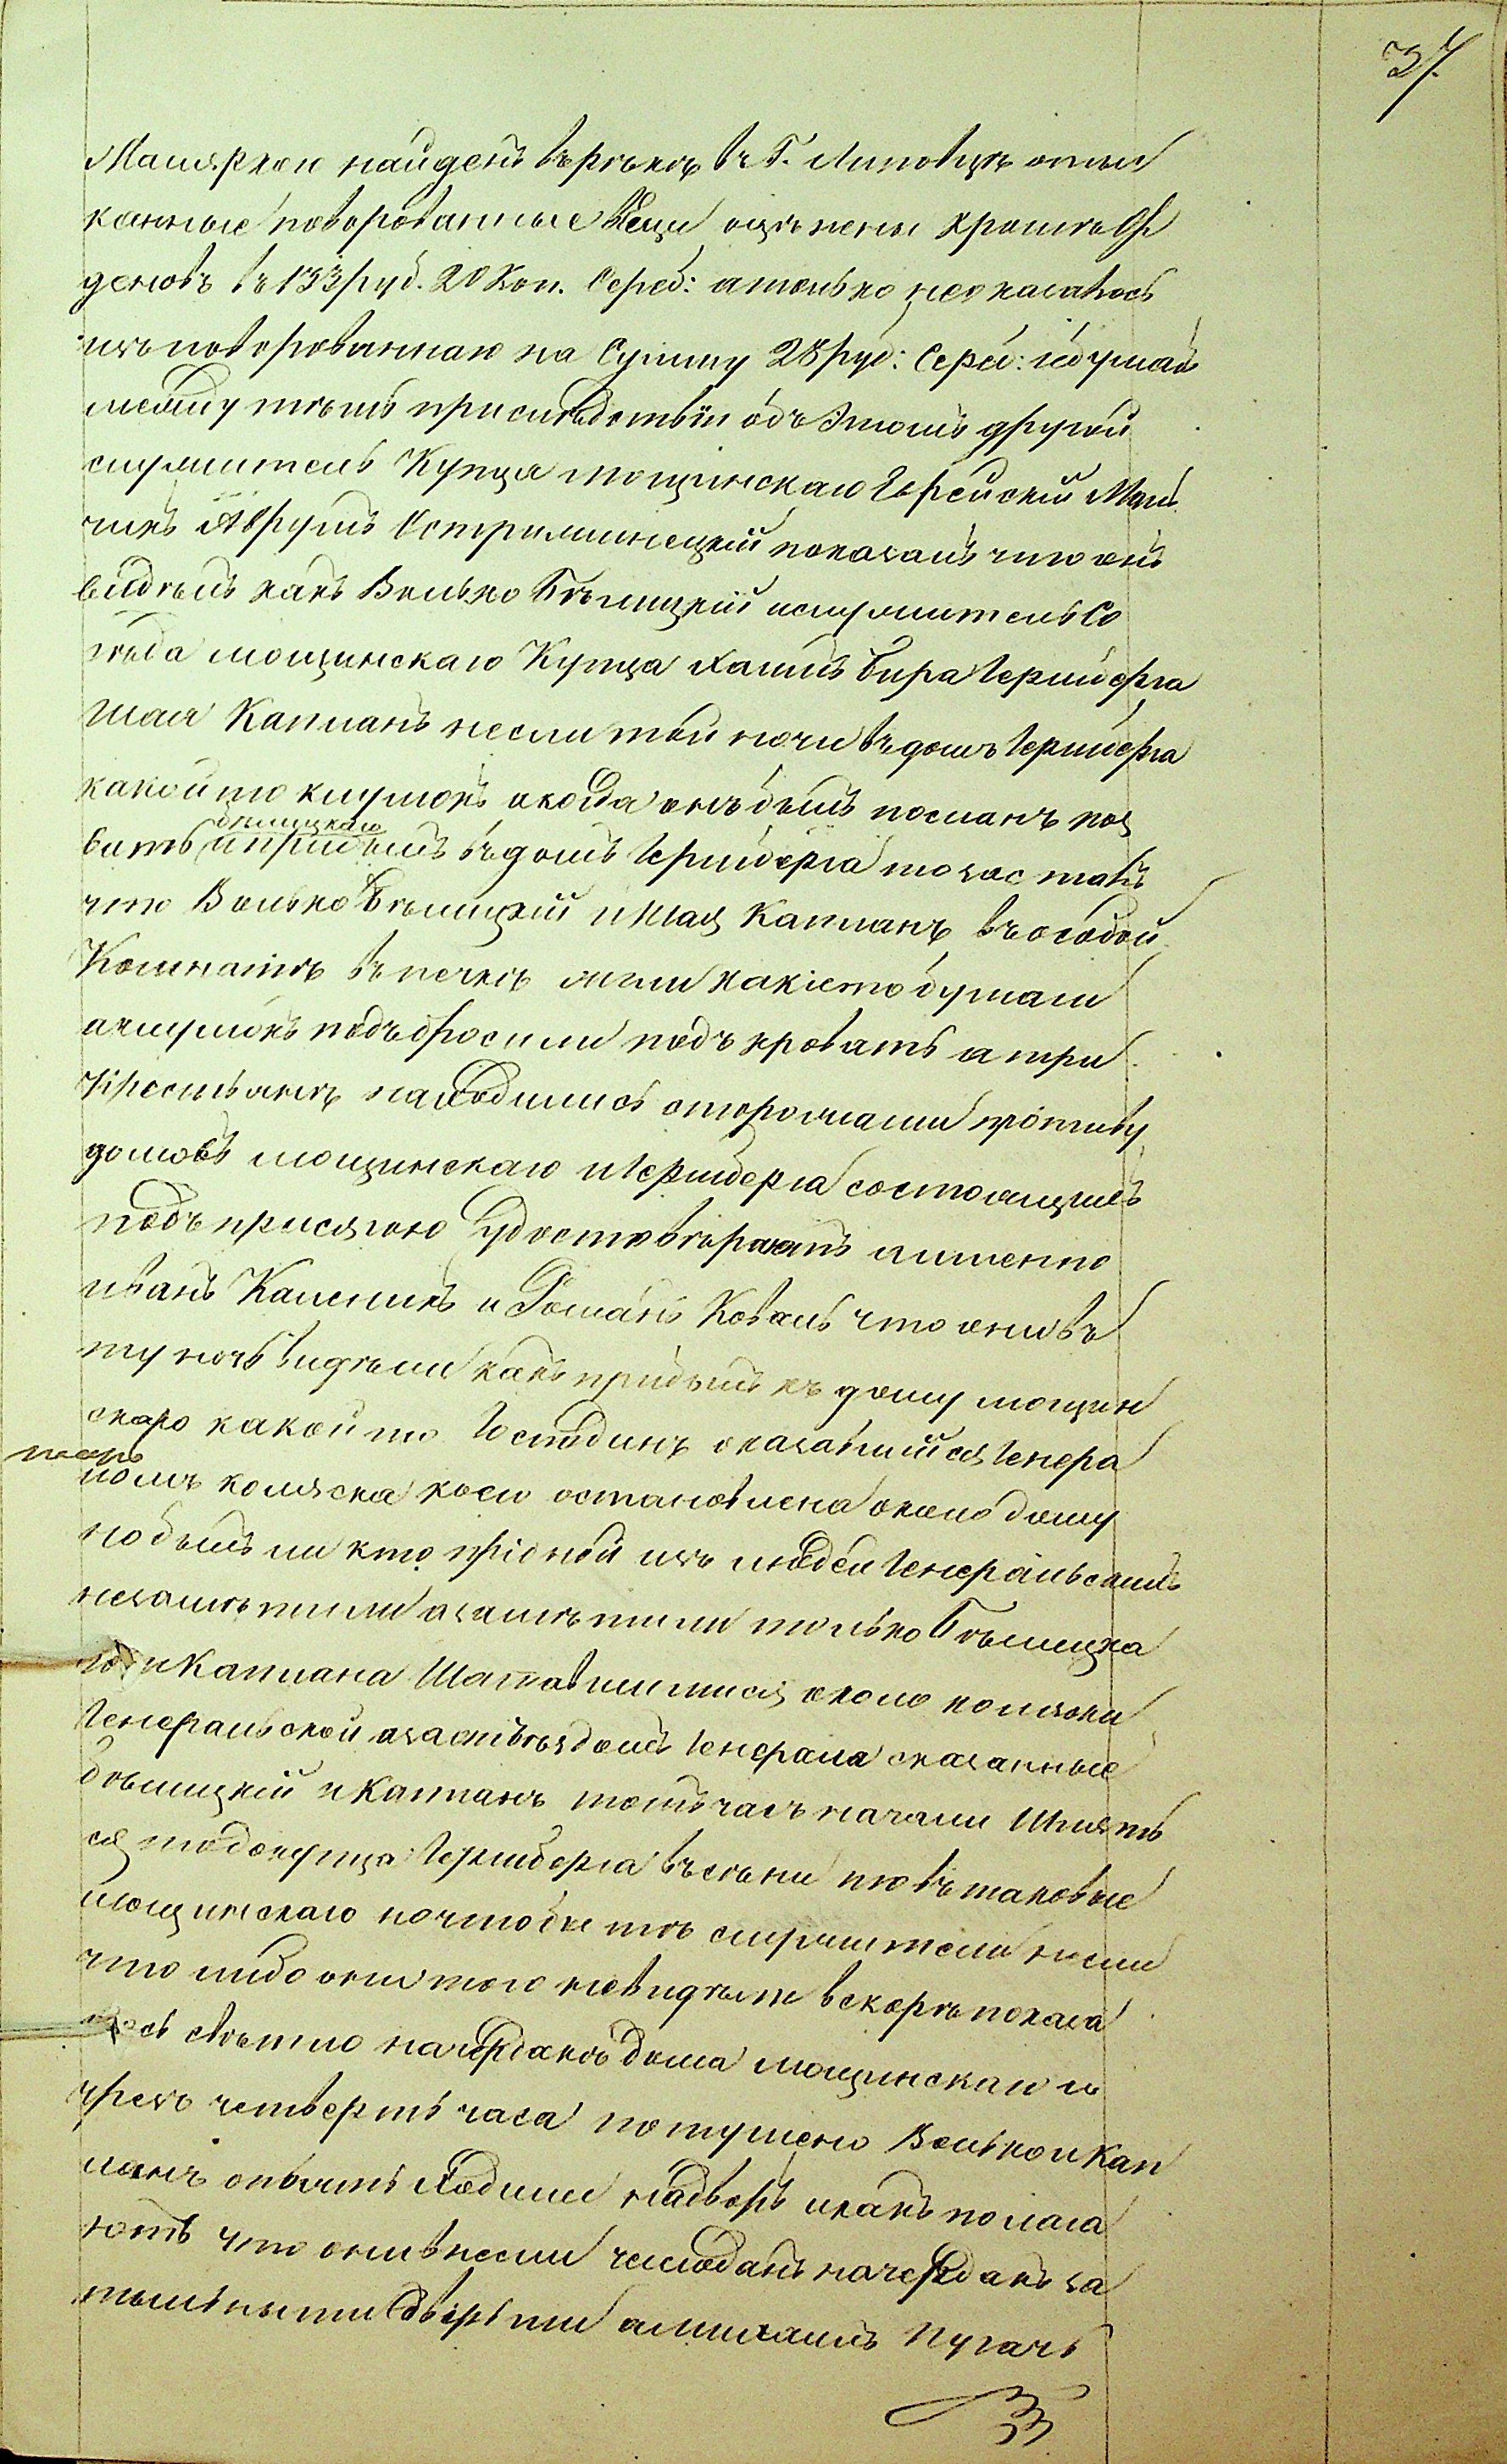 37.
Маляркои найденъ въ рѣкѣ въ Г. Липовцѣ отыс
канные поворованные вещи оцѣнены кромѣ Ор
деновъ въ 133 руб. 20 коп. Сереб: а только не оказалось
изъ поворованнаго на Сумму 28 руб: Сереб: и бумагъ
между тѣмъ при слѣдствіи объ этомъ другой
служитель Купца Мощинскаго Еврейскій Маль
чикъ Аврумъ Острижинецкій показалъ что онъ
видѣлъ какъ Волько Бѣлицкій и служитель Со
сѣда Мощинскаго Купца Хаимъ Бира Гершберга
Шая Капланъ несли той ночи въ домъ Гершберга
какой то клумокъ а когда онъ былъ посланъ поз
вать Бѣлицкаго и пришелъ въ домъ Гершберга то засталъ
что Волько Бѣлицкій и Шая Капланъ въ особой
Комнатѣ въ печкѣ жгли какіе то бумаги
а клумокъ подъбросили подъ кровать а три
Крестьянѣ находились сторожами противу
домовъ Мощинскаго и Гершберга состоящихъ
подъ присягою удостовѣряютъ именно
Иванъ Каленикъ и Романъ Коваль что они въ
ту ночь видѣли какъ прибылъ къ дому Мощин
скаго какой то Господинъ оказавшійся Генера
ломъ коляска коего остановлена около дому
но былъ ли кто при оной изъ людей Генеральскихъ
незамѣтили а замѣтили только Бѣлицка
го и Каплана Шатавшимися около коляски
Генеральской а за отъѣздомъ Генерала сказанные
Бѣлицкій и Капланъ тотъ часъ начали Шлять
ся то до купца Гершберга въ сѣни то въ таковые
Мощинскаго но чтобы тѣ служители несли
что либо они того невидѣли вскорѣ показа
лось свѣтло на чердакѣ дома Мощинскаго и
чрезъ четверть часа потушено Волько и Кап
ланъ опьять ходили надворъ и какъ полага
ютъ что они внесли чемоданъ на чердакъ за
тыльными дверьми а Михаилъ Пугачь